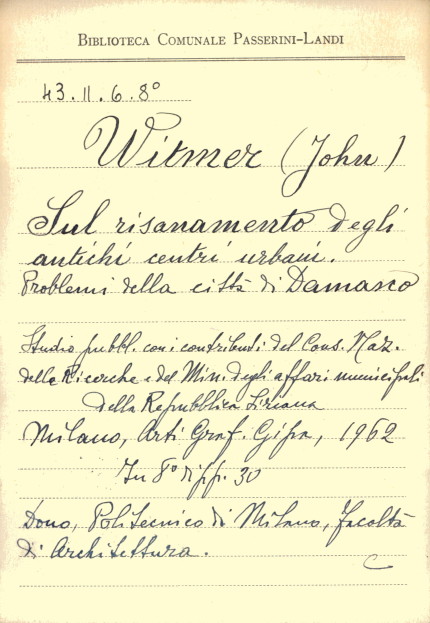 BIBLIOTECA COMUNALE PASSERINI-LANDI
43.11.6.8°
Witmer (John)
Sul risanamento degli
antichi centri urbani.
Problemi della città di Damasco
Studio pubbl. con i contributi del Cons. Naz.
delle Ricerche e del Min. degli affari municipali
della Repubblica Siriana
Milano, Arti Graf. Gifra, 1962
In 8° di pp. 30
Dono, Politecnico di Milano, facoltà
di Architettura.